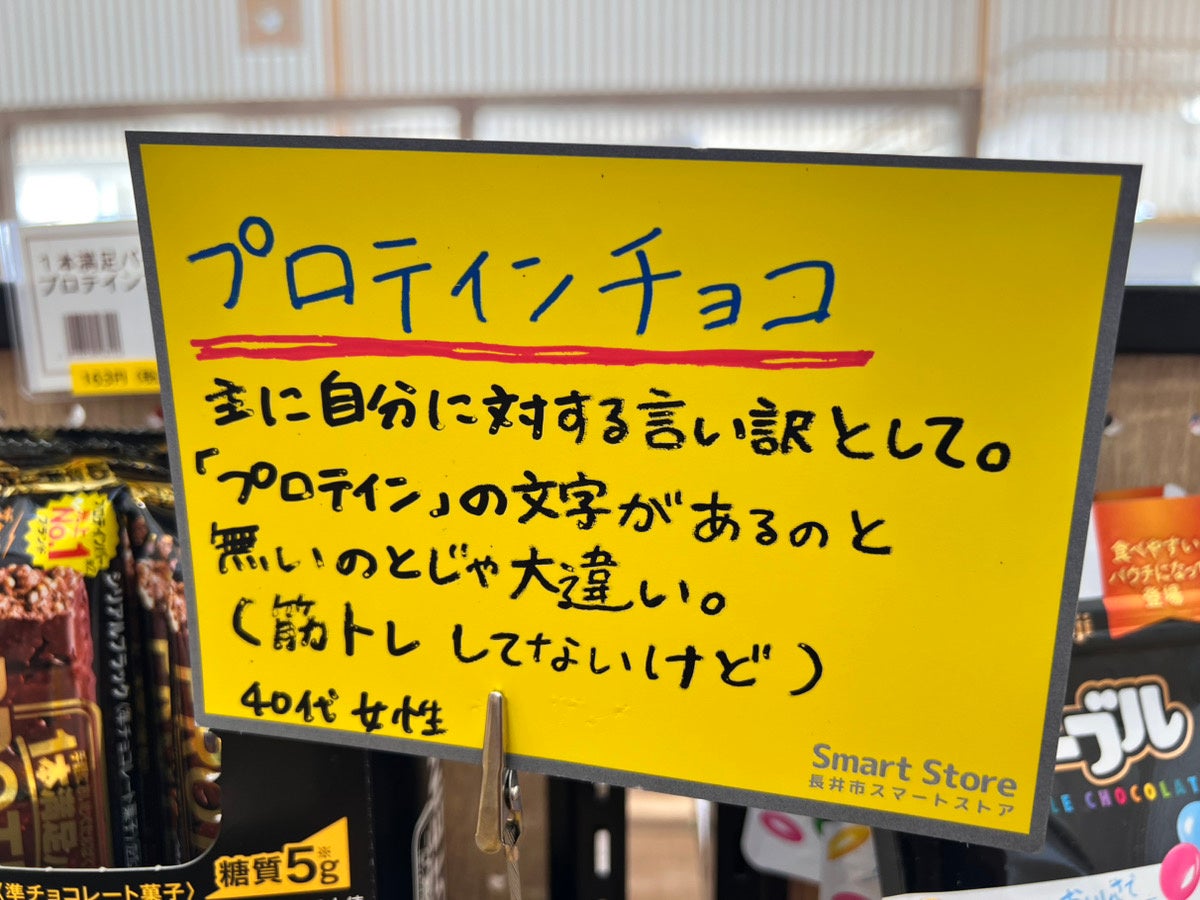 プロテインチョコ
主に自分に対する言い訳として。
「プロテイン」の文字があるのと
無いのとじゃ大違い。
(筋トレしてないけど)
40代 女性
Smart Store
長井市スマートストア
1本満足バ
プロテイン
163円
No.1
シリアルブラック
1本満足
糖質5g※
(準チョコレート菓子)
食べやすい
パウチになって
登場
ーブル
LE CHOCOLAT